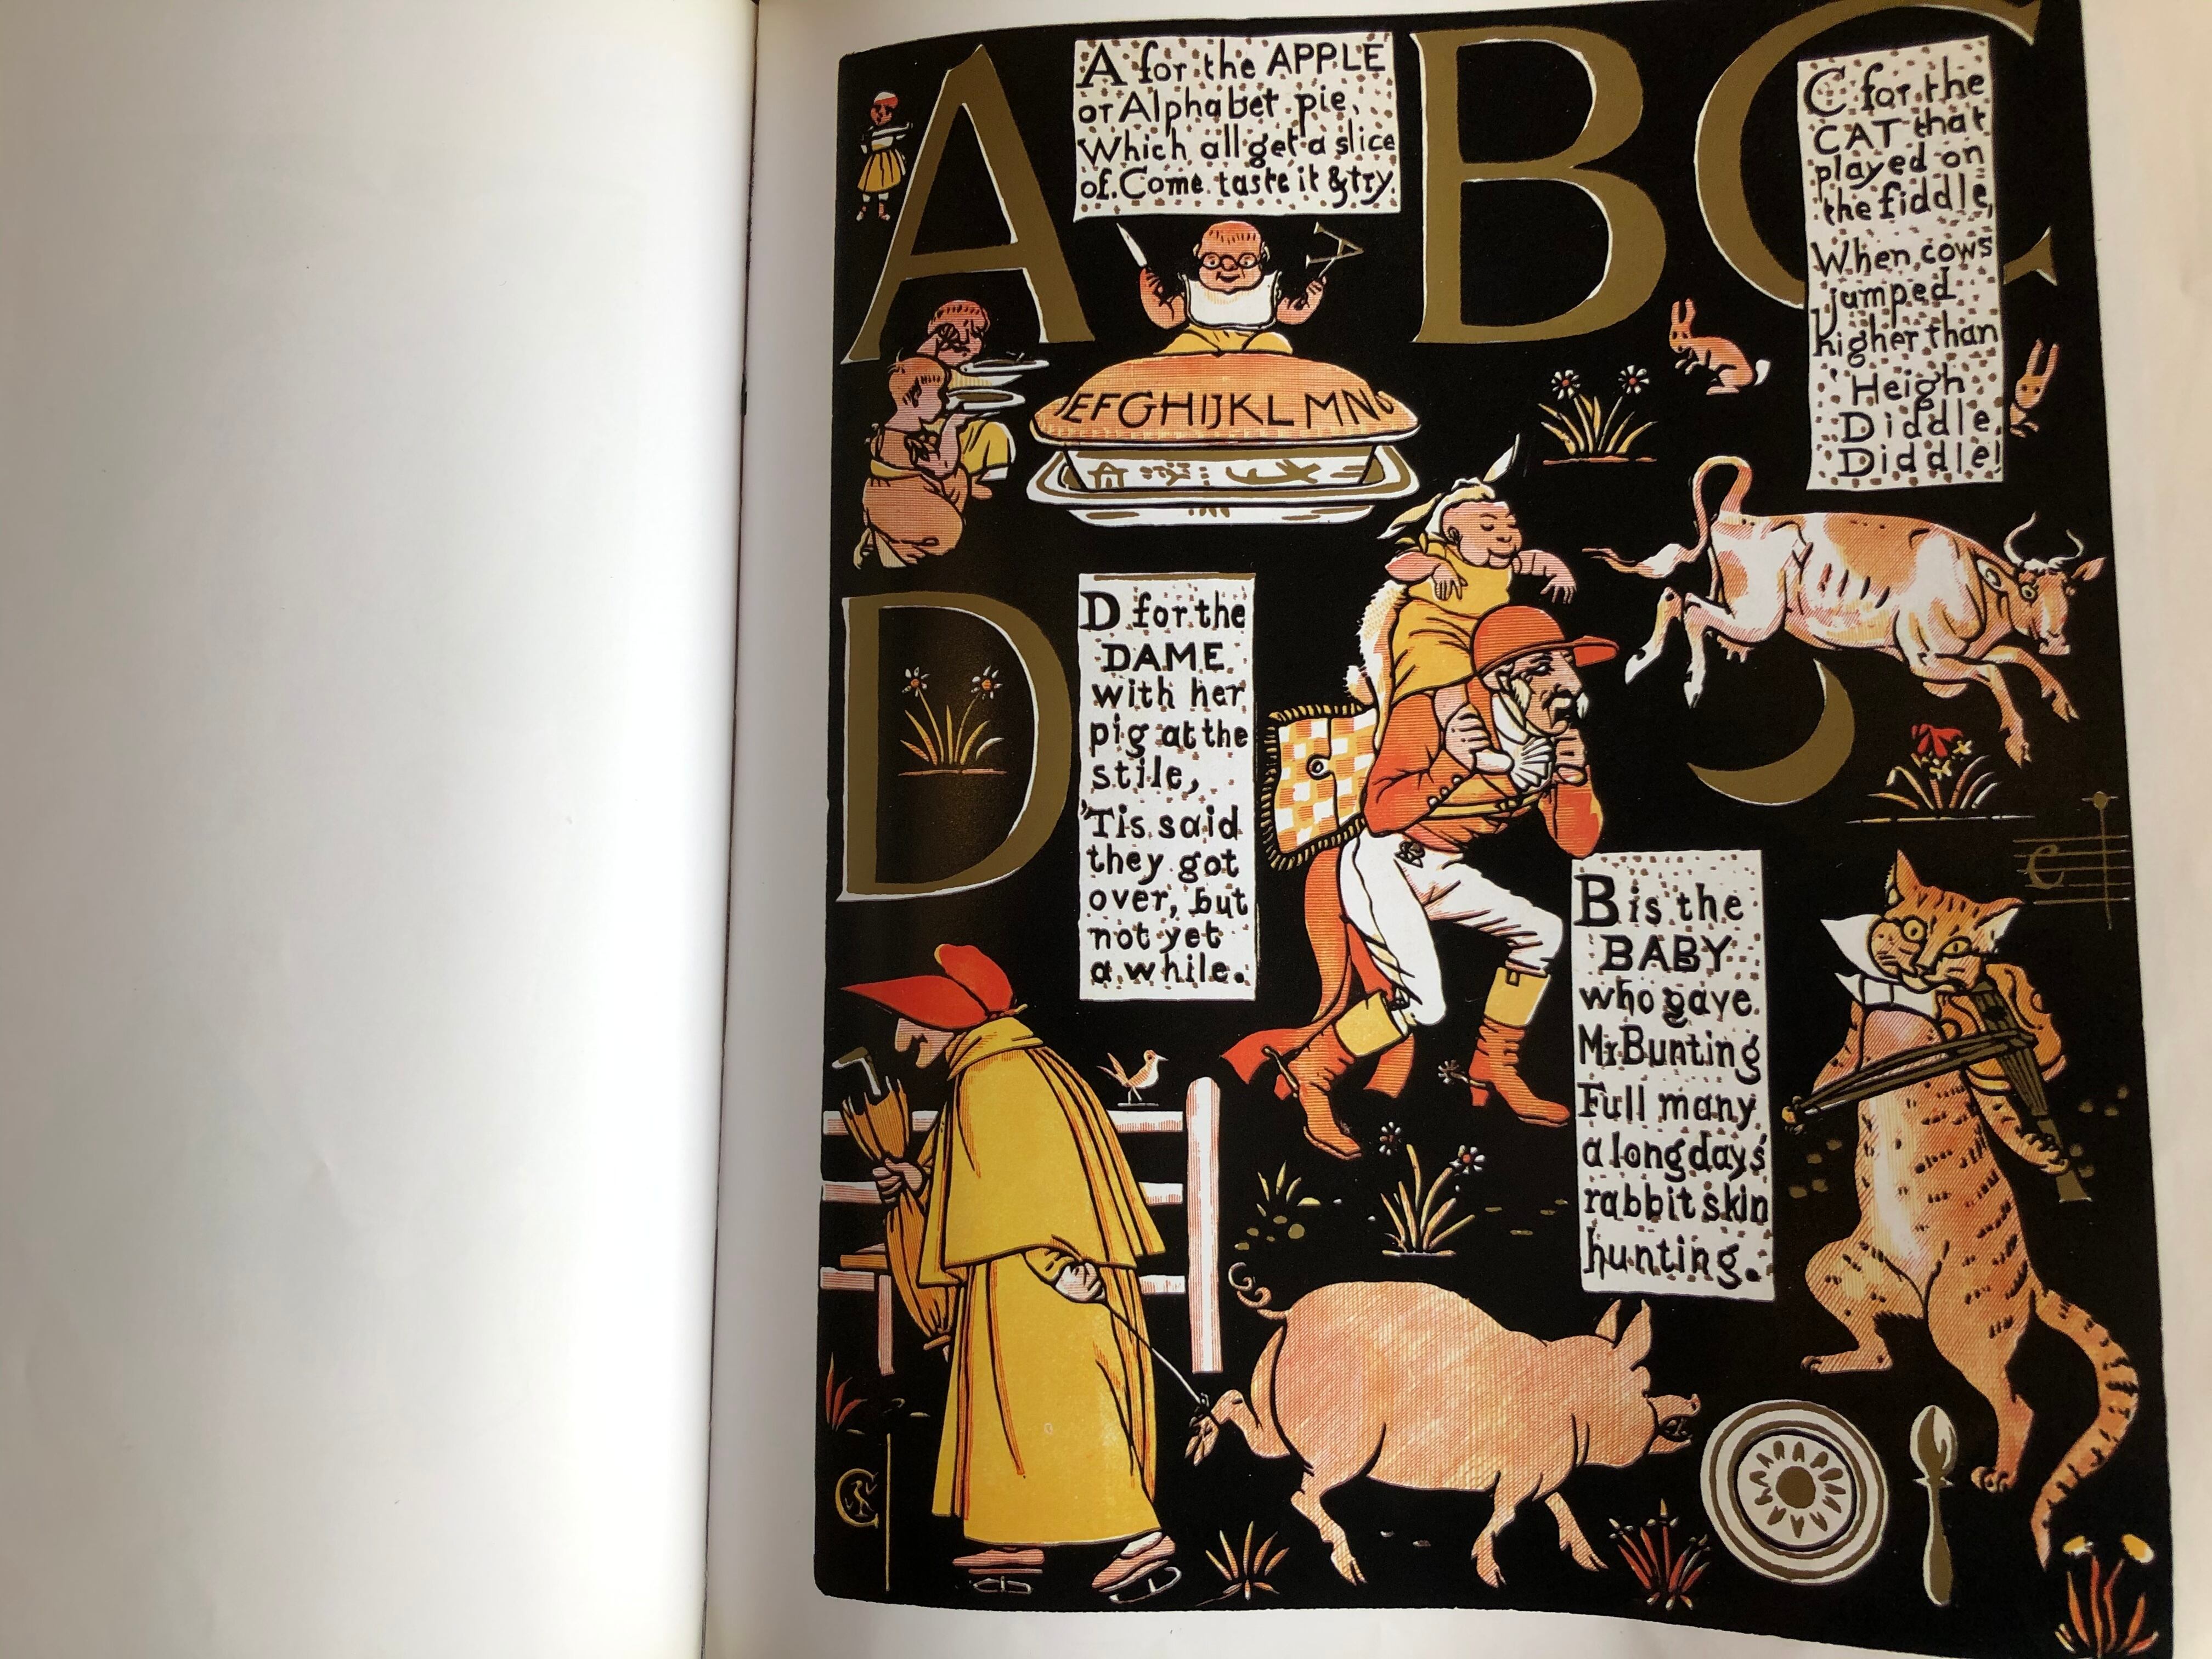 A
A for the APPLE
or Alphabet pie,
Which all get a slice
of. Come taste it & try.
A
EFGHIJKLMN
B
B is the
BABY
who gave
Mr Bunting
Full many
a long days'
rabbit skin
hunting.
C
C for the
CAT that
played on
the fiddle,
When cows
jumped
higher than
'Heigh
Diddle,
Diddle!
D
D for the
DAME
with her
pig at the
stile,
'Tis said
they got
over, but
not yet
a while.